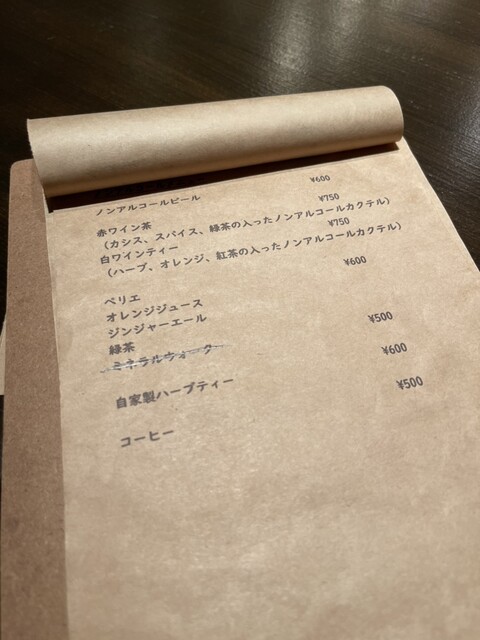 ノンアルコールビール ¥600
赤ワイン茶 ¥750
(カシス、スパイス、緑茶の入ったノンアルコールカクテル)
白ワインティー ¥750
(ハーブ、オレンジ、紅茶の入ったノンアルコールカクテル)
ペリエ ¥600
オレンジジュース
ジンジャーエール
緑茶
ミネラルウォーター ¥500
自家製ハーブティー ¥600
コーヒー ¥500